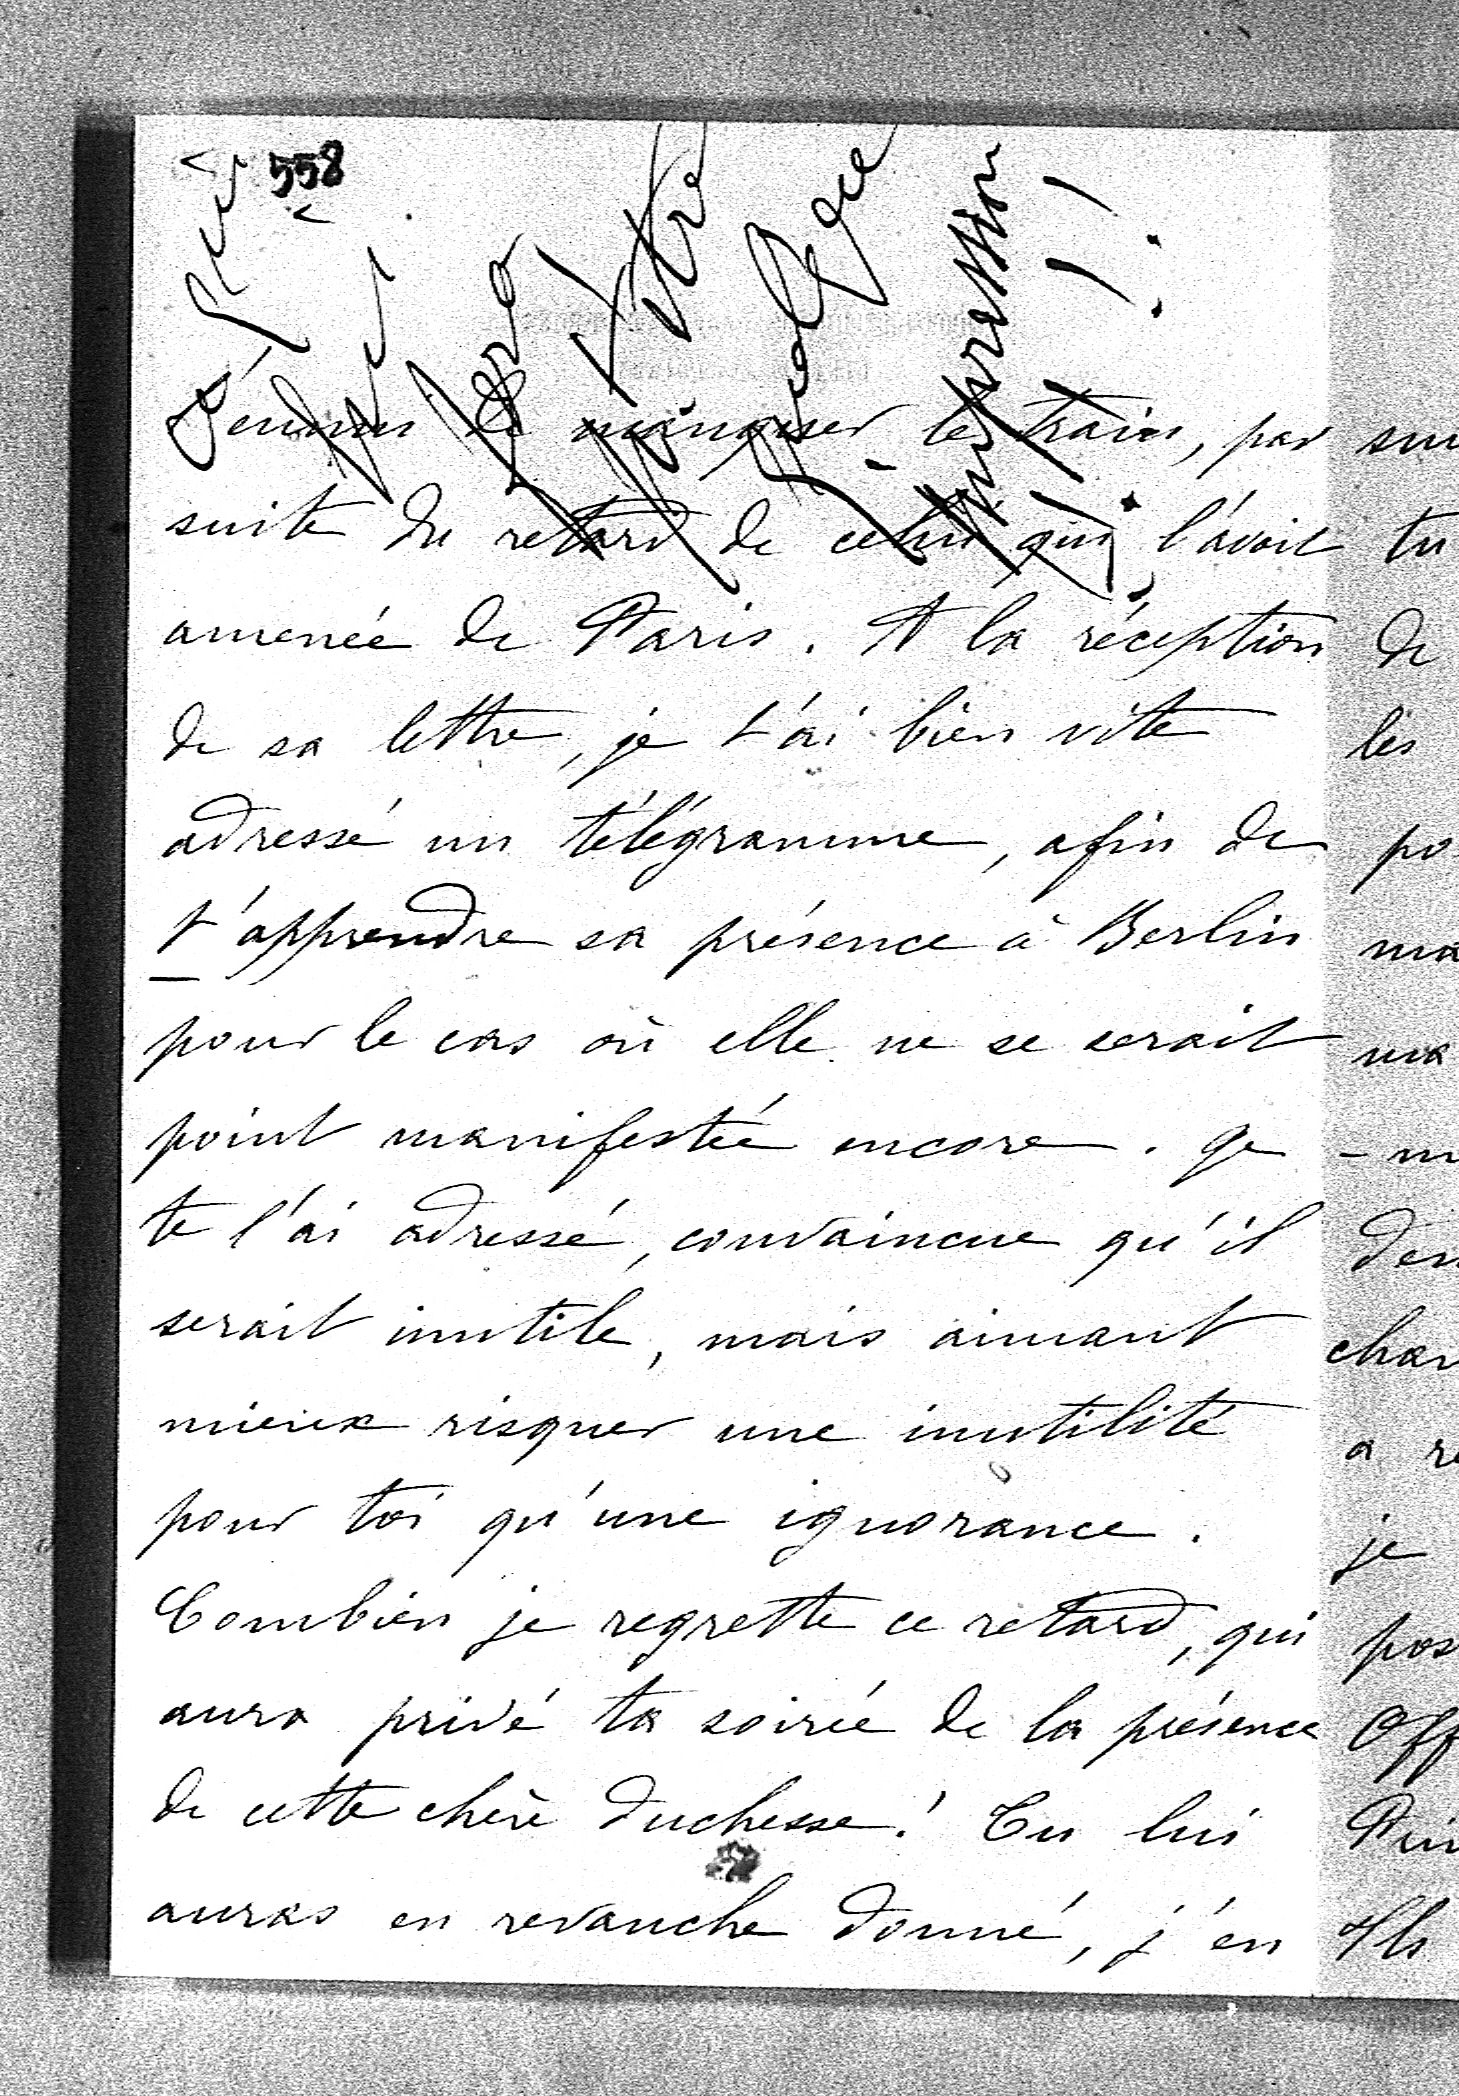 558
l'ennui de manquer le train, par
suite du retard de celui qui l'avait
amenée de Paris. A la réception
de sa lettre, je t'ai bien vite
adressé un télégramme, afin de
t'apprendre sa présence à Berlin
pour le cas où elle ne se serait
point manifestée encore. Je
te l'ai adressé, convaincue qu'il
serait inutile, mais aimant
mieux risquer une inutilité
pour toi qu'une ignorance.
Combien je regrette ce retard, qui
aura privé ta soirée de la présence
de cette chère Duchesse! Tu lui
auras en revanche donné, j'en
impression
tu
de
les
je